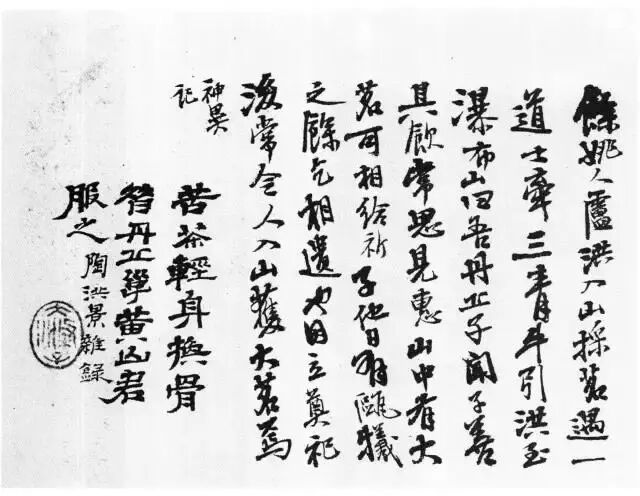 餘姚人盧洪入山採茗遇一
道士牽三青牛引洪至
瀑布山曰吾丹丘子聞子善
具飲常思見惠山中有大
茗可相給祈子他日有甌犧
之餘乞相遺也因立奠祀
後常令人入山獲大茗焉
神異
記
苦茶輕身換骨
昔丹丘黃山君
服之 陶洪景雜錄